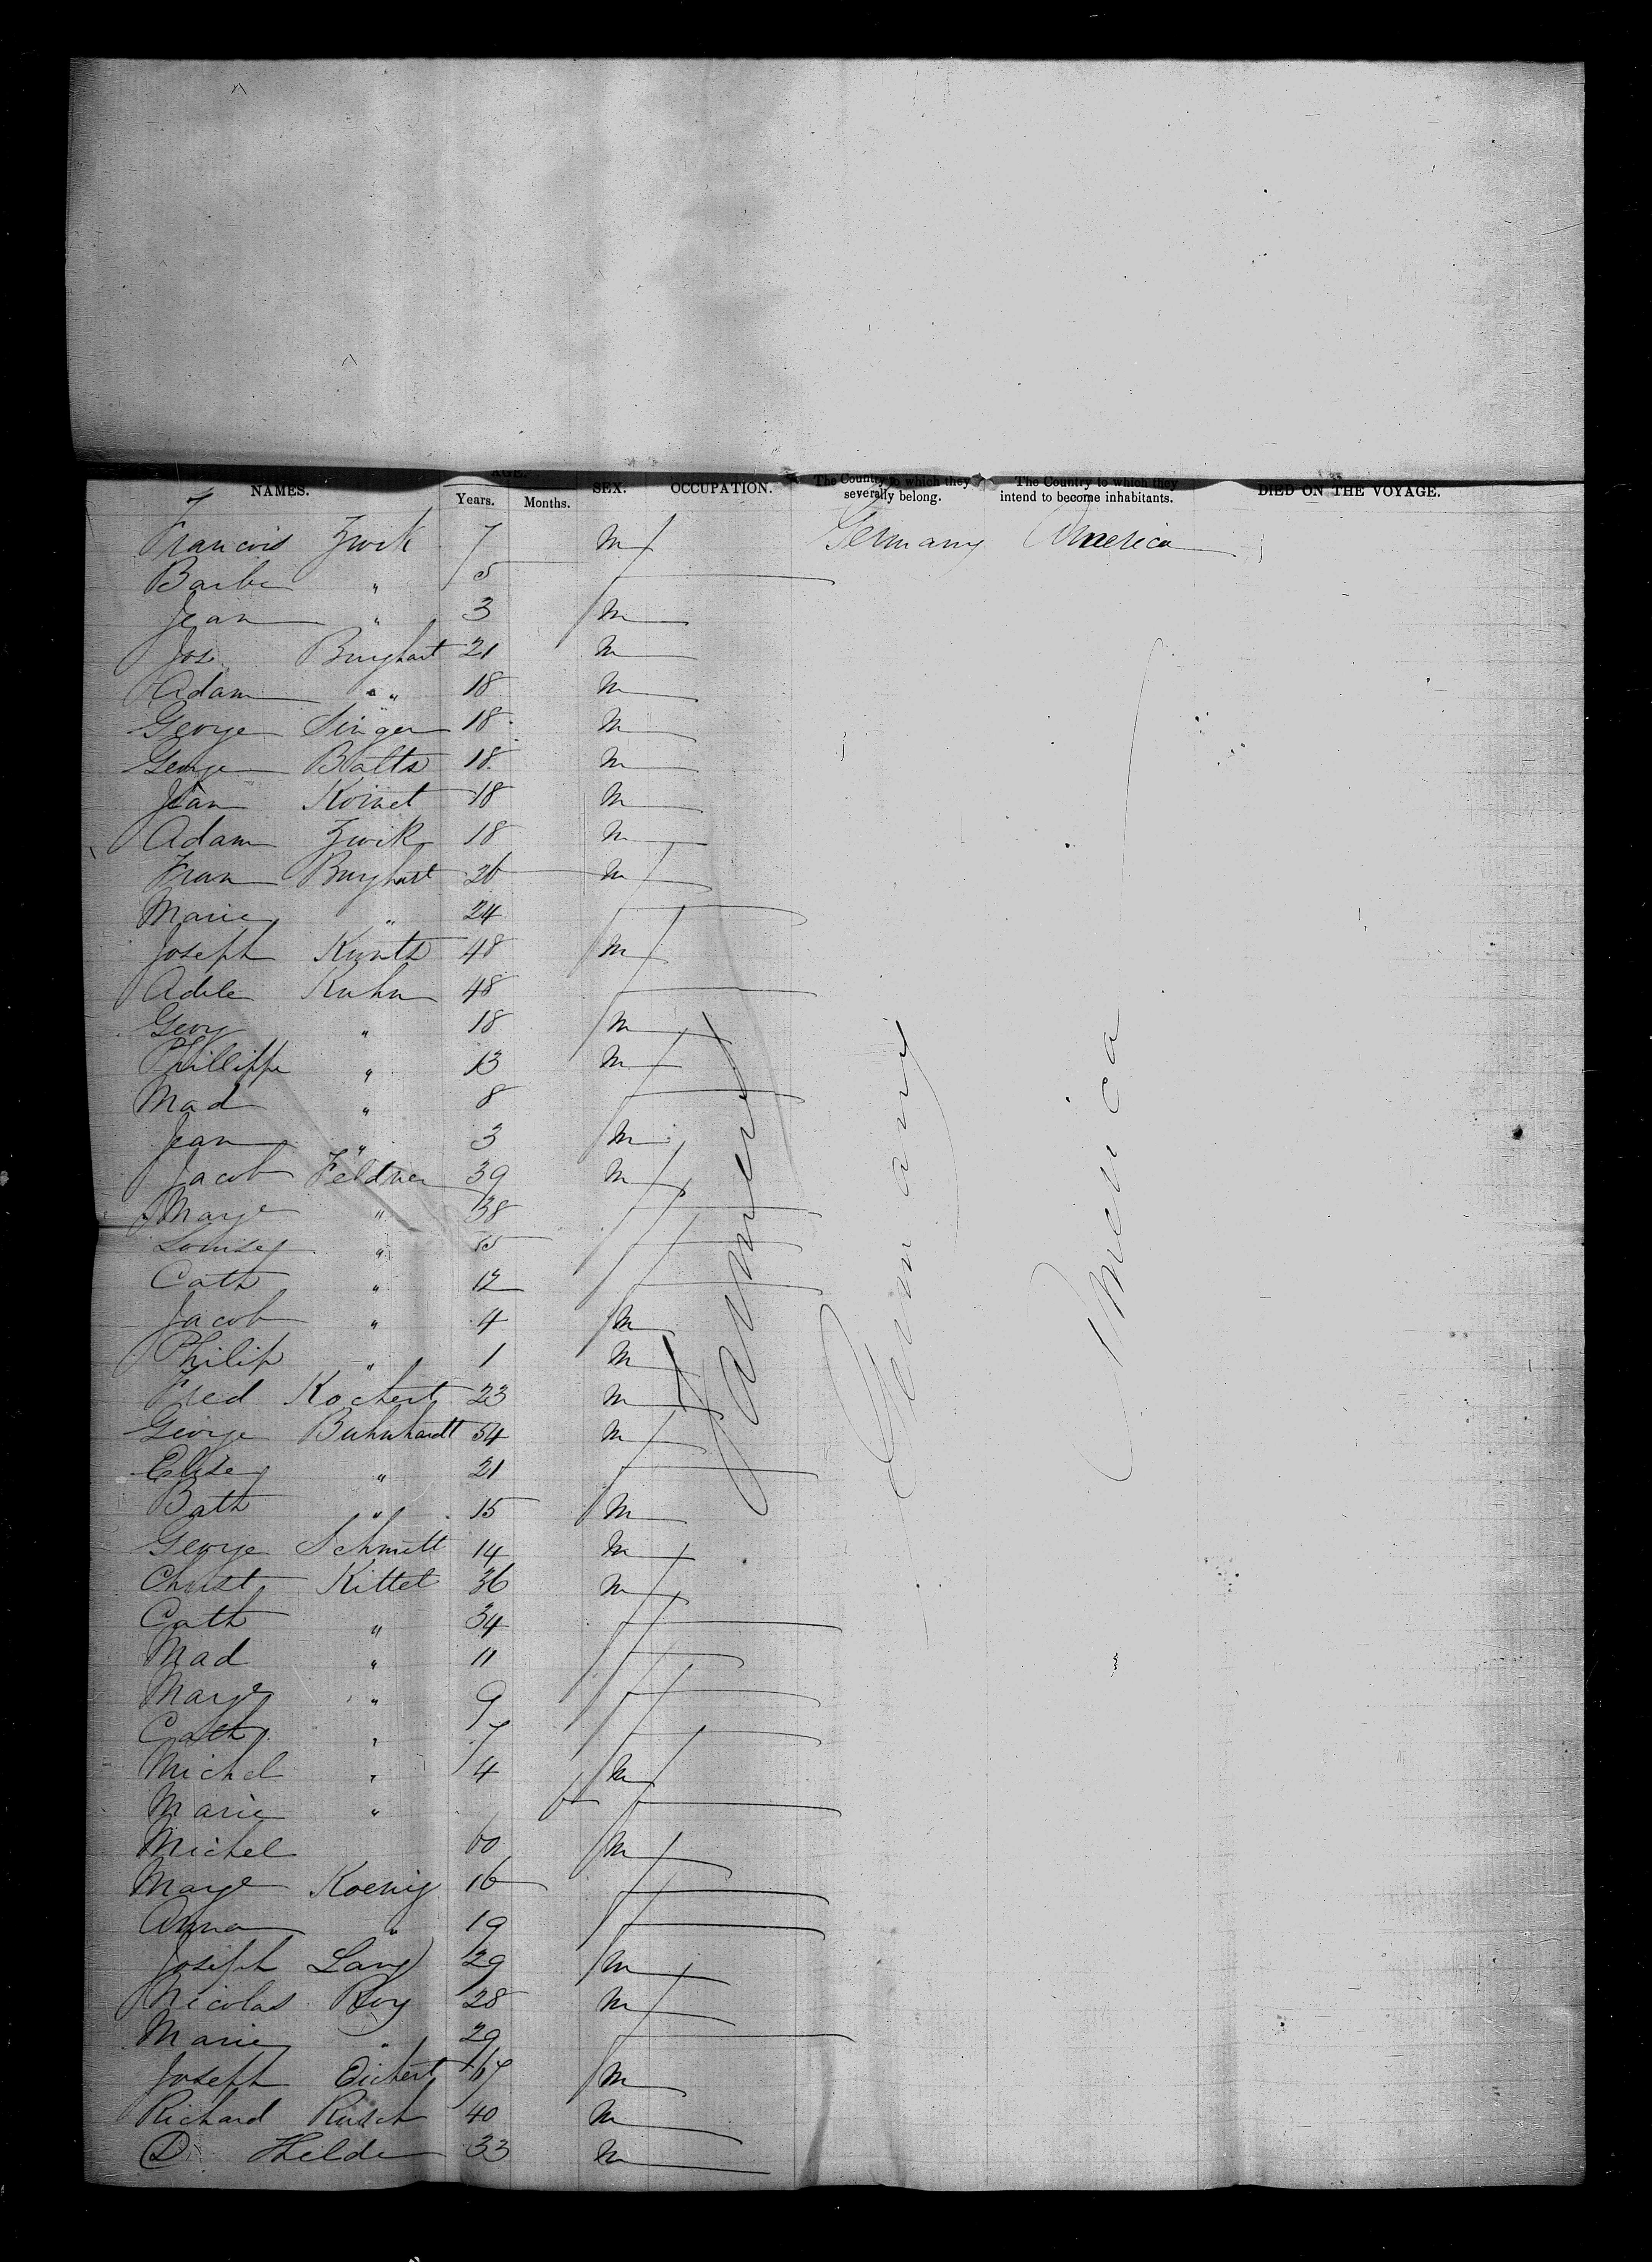 NAMES. AGE. Years. Months. SEX. OCCUPATION. The Country to which they severally belong. The Country to which they intend to become inhabitants. DIED ON THE VOYAGE.
Francois Zwik 7 M Germany America
Barbe " 5 f
Jean " 3 M
Jos Burghart 21 M
Adam " 18 M
George Singer 18 M
George Balts 18 M
Jean Koinet 18 M
Adam Zwik 18 M
Fran Burghart 26 M
Marie " 24 f
Joseph Kuntz 48 M
Adele Kuhn 48 f
Georg " 18 M
Phillippe " 13 M
Mad " 8 f
Jean " 3 M
Jacob Feldner 39 M
Marge " 38 f
Louise " 15 f
Cath " 12 f
Jacob " 4 M
Philip " 1 M
Fred Kochert 23 M
George Buhnhardt 54 M
Elise " 21 f
Bath " 15 M
George Schmitt 14 M
Christ Kittel 36 M
Cath " 34 f
Mad " 11 f
Marge " 9 f
Cath " 7 f
Michel " 4 M
Marie " f
Michel 60 M
Marge Koenig 16 f
Anna " 19 f
Joseph Lang 29 M
Nicolas Roy 28 M
Marie " 29 f
Joseph Eichert 67 M
Richard Rusch 40 M
D Helde 33 M
farmer
Germany
America